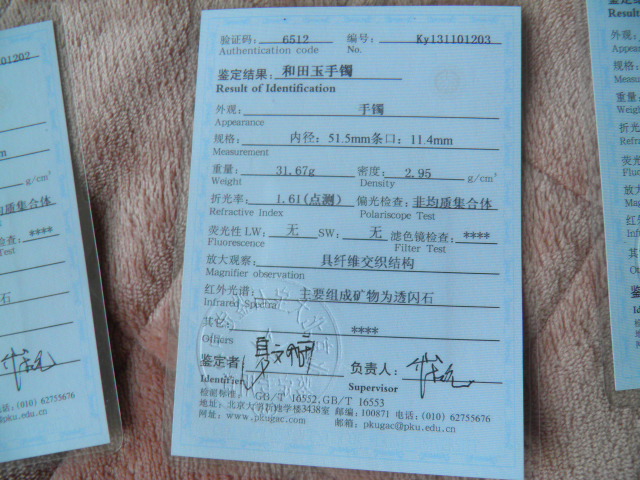 验证码: 6512 编号: Ky131101203
Authentication code No.
鉴定结果: 和田玉手镯
Result of Identification
外观: 手镯
Appearance
规格: 内径: 51.5mm条口: 11.4mm
Measurement
重量: 31.67g 密度: 2.95 g/cm³
Weight Density
折光率: 1.61(点测) 偏光检查: 非均质集合体
Refractive Index Polariscope Test
荧光性 LW: 无 SW: 无 滤色镜检查: ****
Fluorescence Filter Test
放大观察: 具纤维交织结构
Magnifier observation
红外光谱: 主要组成矿物为透闪石
Infrared Spectra
其它: ****
Others
鉴定者 负责人:
Identifier Supervisor
检测标准: GB/T 16552, GB/T 16553
地址: 北京大学新地学楼3438室 邮编: 100871 电话: (010) 62755676
网址: www.pkugac.com 邮箱: pkugac@pku.edu.cn
01202
g/cm³
均质集合体
检查: ****
Test
石
电话: (010) 62755676
@pku.edu.cn
Result
外观:
Appea
规格:
Measu
重量:
Weigh
折光
Refra
荧光
Fluo
放大
Mag
红外
Infra
其